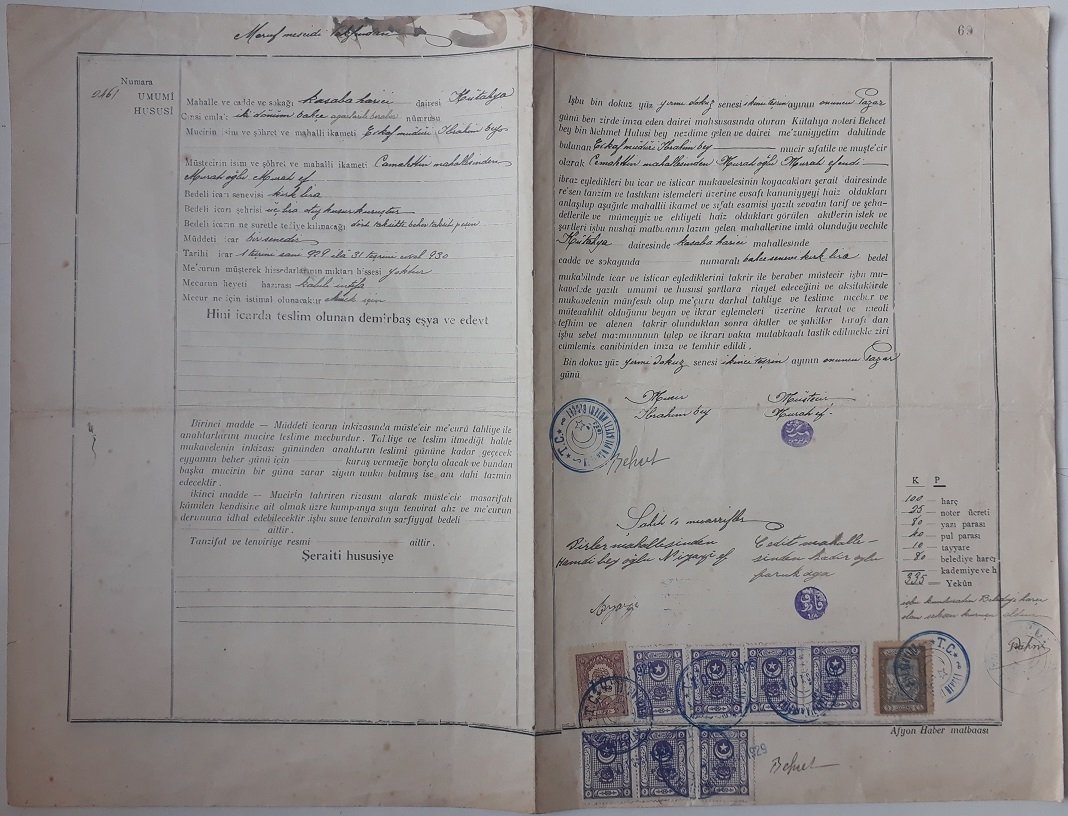 Maruf mescidi
69
Numara
2461 UMUMİ
HUSUSİ
Mahalle ve cadde ve sokağı kasaba harici dairesi Kütahya
Cinsi emlak iki dönüm bahçe nümrusu
Mucirin isim ve şöhret ve mahalli ikameti Evkaf müdürü İbrahim bey
Müstecirin isim ve şöhret ve mahalli ikameti Cemalettin mahallesinden
Murat oğlu Murat ef
Bedeli icarı senevisi kırk lira
Bedeli icarı şehrisi üç lira otuz küsur kuruştur
Bedeli icarın ne suretle tediye kılınacağı dört taksitte beher taksit peşin
Müddeti icar bir senedir
Tarihi icar 1 teşrini sani 929 ila 31 teşrini evvel 930
Me'curun müşterek hissedarlarının miktarı hissesi yoktur
Mecurun heyeti hazırası
Mecur ne için istimal olunacaktır ekmek için
Hini icarda teslim olunan demirbaş eşya ve edevt
Birinci madde — Müddeti icarın inkizasında müste'cir me'curü tahliye ile
anahtarlarını mucire teslime mecburdur. Tahliye ve teslim ilmediği halde
mukavelenin inkizası gününden anahtarın teslimi gününe kadar geçecek
eyyamın beher günü için kuruş vermeğe borçlu olacak ve bundan
başka mucirin bir güna zarar ziyan vuku bulmuş ise anı dahi tazmin
edecektir .
ikinci madde — Mucirin tahriren rizasını alarak müste'cir masarifatı
kâmilen kendisine ait olmak üzre kumpanya suyu tenvirat ahz ve me'curun
derununa idhal edebilecektir işbu suve tenviratın sarfiyyat bedeli
aittir .
Tanzifat ve tenviriye resmi aittir .
Şeraiti hususiye
İşbu bin dokuz yüz yirmi dokuz senesi ikinci teşrin ayının onuncu Pazar
günü ben zirde imza eden dairei mahsusasında oturan Kütahya noteri Behcet
bey bin Mehmet Hulusi bey nezdime gelen ve dairei me'zuniyyetim dahilinde
bulunan Evkaf müdürü İbrahim bey mucir sıfatile ve muşte'cir
olarak Cemalettin mahallesinden Murat oğlu Murat efendi
ibraz eyledikleri bu icar ve isticar mukavelesinin koyacakları şerait dairesinde
re'sen tanzim ve tastikını istemeleri üzerine evsafı kanuniyyeyi haiz oldukları
anlaşılup aşağıde mahalli ikamet ve sıfatı esamisi yazılı zevatın tarif ve şeha-
detlerile ve mümeyyiz ve ehliyeti haiz oldukları görülen akıtlerin istek ve
şartleri işbu nushai matbuanın lazım gelen mahallerine imlâ olunduğu vechile
Kütahya dairesinde kasaba harici mahallesinde
cadde ve sokağında numaralı bahçe senevi kırk lira bedel
mukabilinde icar ve isticar eylediklerini takrir ile beraber müstecir işbu mu-
kavelede yazılı umumi ve hususi şartlara riayet edeceğini ve aksitaktirde
mukavelenin münfesih olup me'curu darhal tahliye ve teslime mecbur ve
müteahhit olduğunu beyan ve ikrar eylemeleri üzerine kıraat ve meali
tefhim ve alenen takrir olunduktan sonra âkıtler ve şahitler tarafı dan
işbu sebet mazmununun talep ve ikrarı vakıa mutabkaatı tastik edilmekle ziri
cümlemiz canibinden imza ve temhir edildi .
Bin dokuz yüz yirmi dokuz senesi ikinci teşrin ayının onuncu Pazar
günü
Mucir Müstecir
İbrahim bey Murat ef.
T.C.
Behcet
Pirler mahallesinden
Hamdi bey oğlu Niyazi ef
Cedit mahalle-
sinden kadir oğlu
faruk ağa
K P
100 — harç
25 — noter ücreti
80 — yazı parası
40 — pul parası
10 — tayyare
80 — belediye harçı
— kademiye ve h
335 — Yekûn
T.C.
Afyon Haber matbaası
Behcet